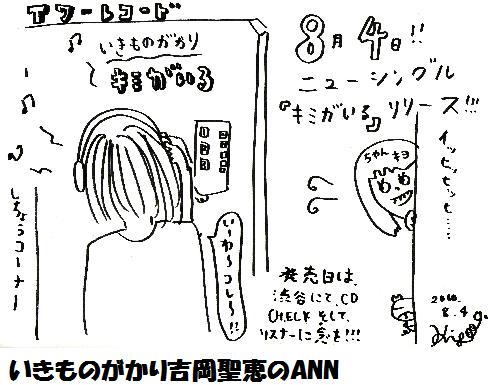 T ワーレコード
いきものがかり
キミがいる
しちょうコーナー
いーわ〜コレ〜!!
8月4日!!
ニューシングル
『キミがいる』リリース!!!
イッヒッヒッヒッ……
ちゃんキヨ
発売日は、
渋谷にて、CD
CHECK そして、
リスナーに念を!!!
2010.
8.4
いきものがかり吉岡聖恵のANN